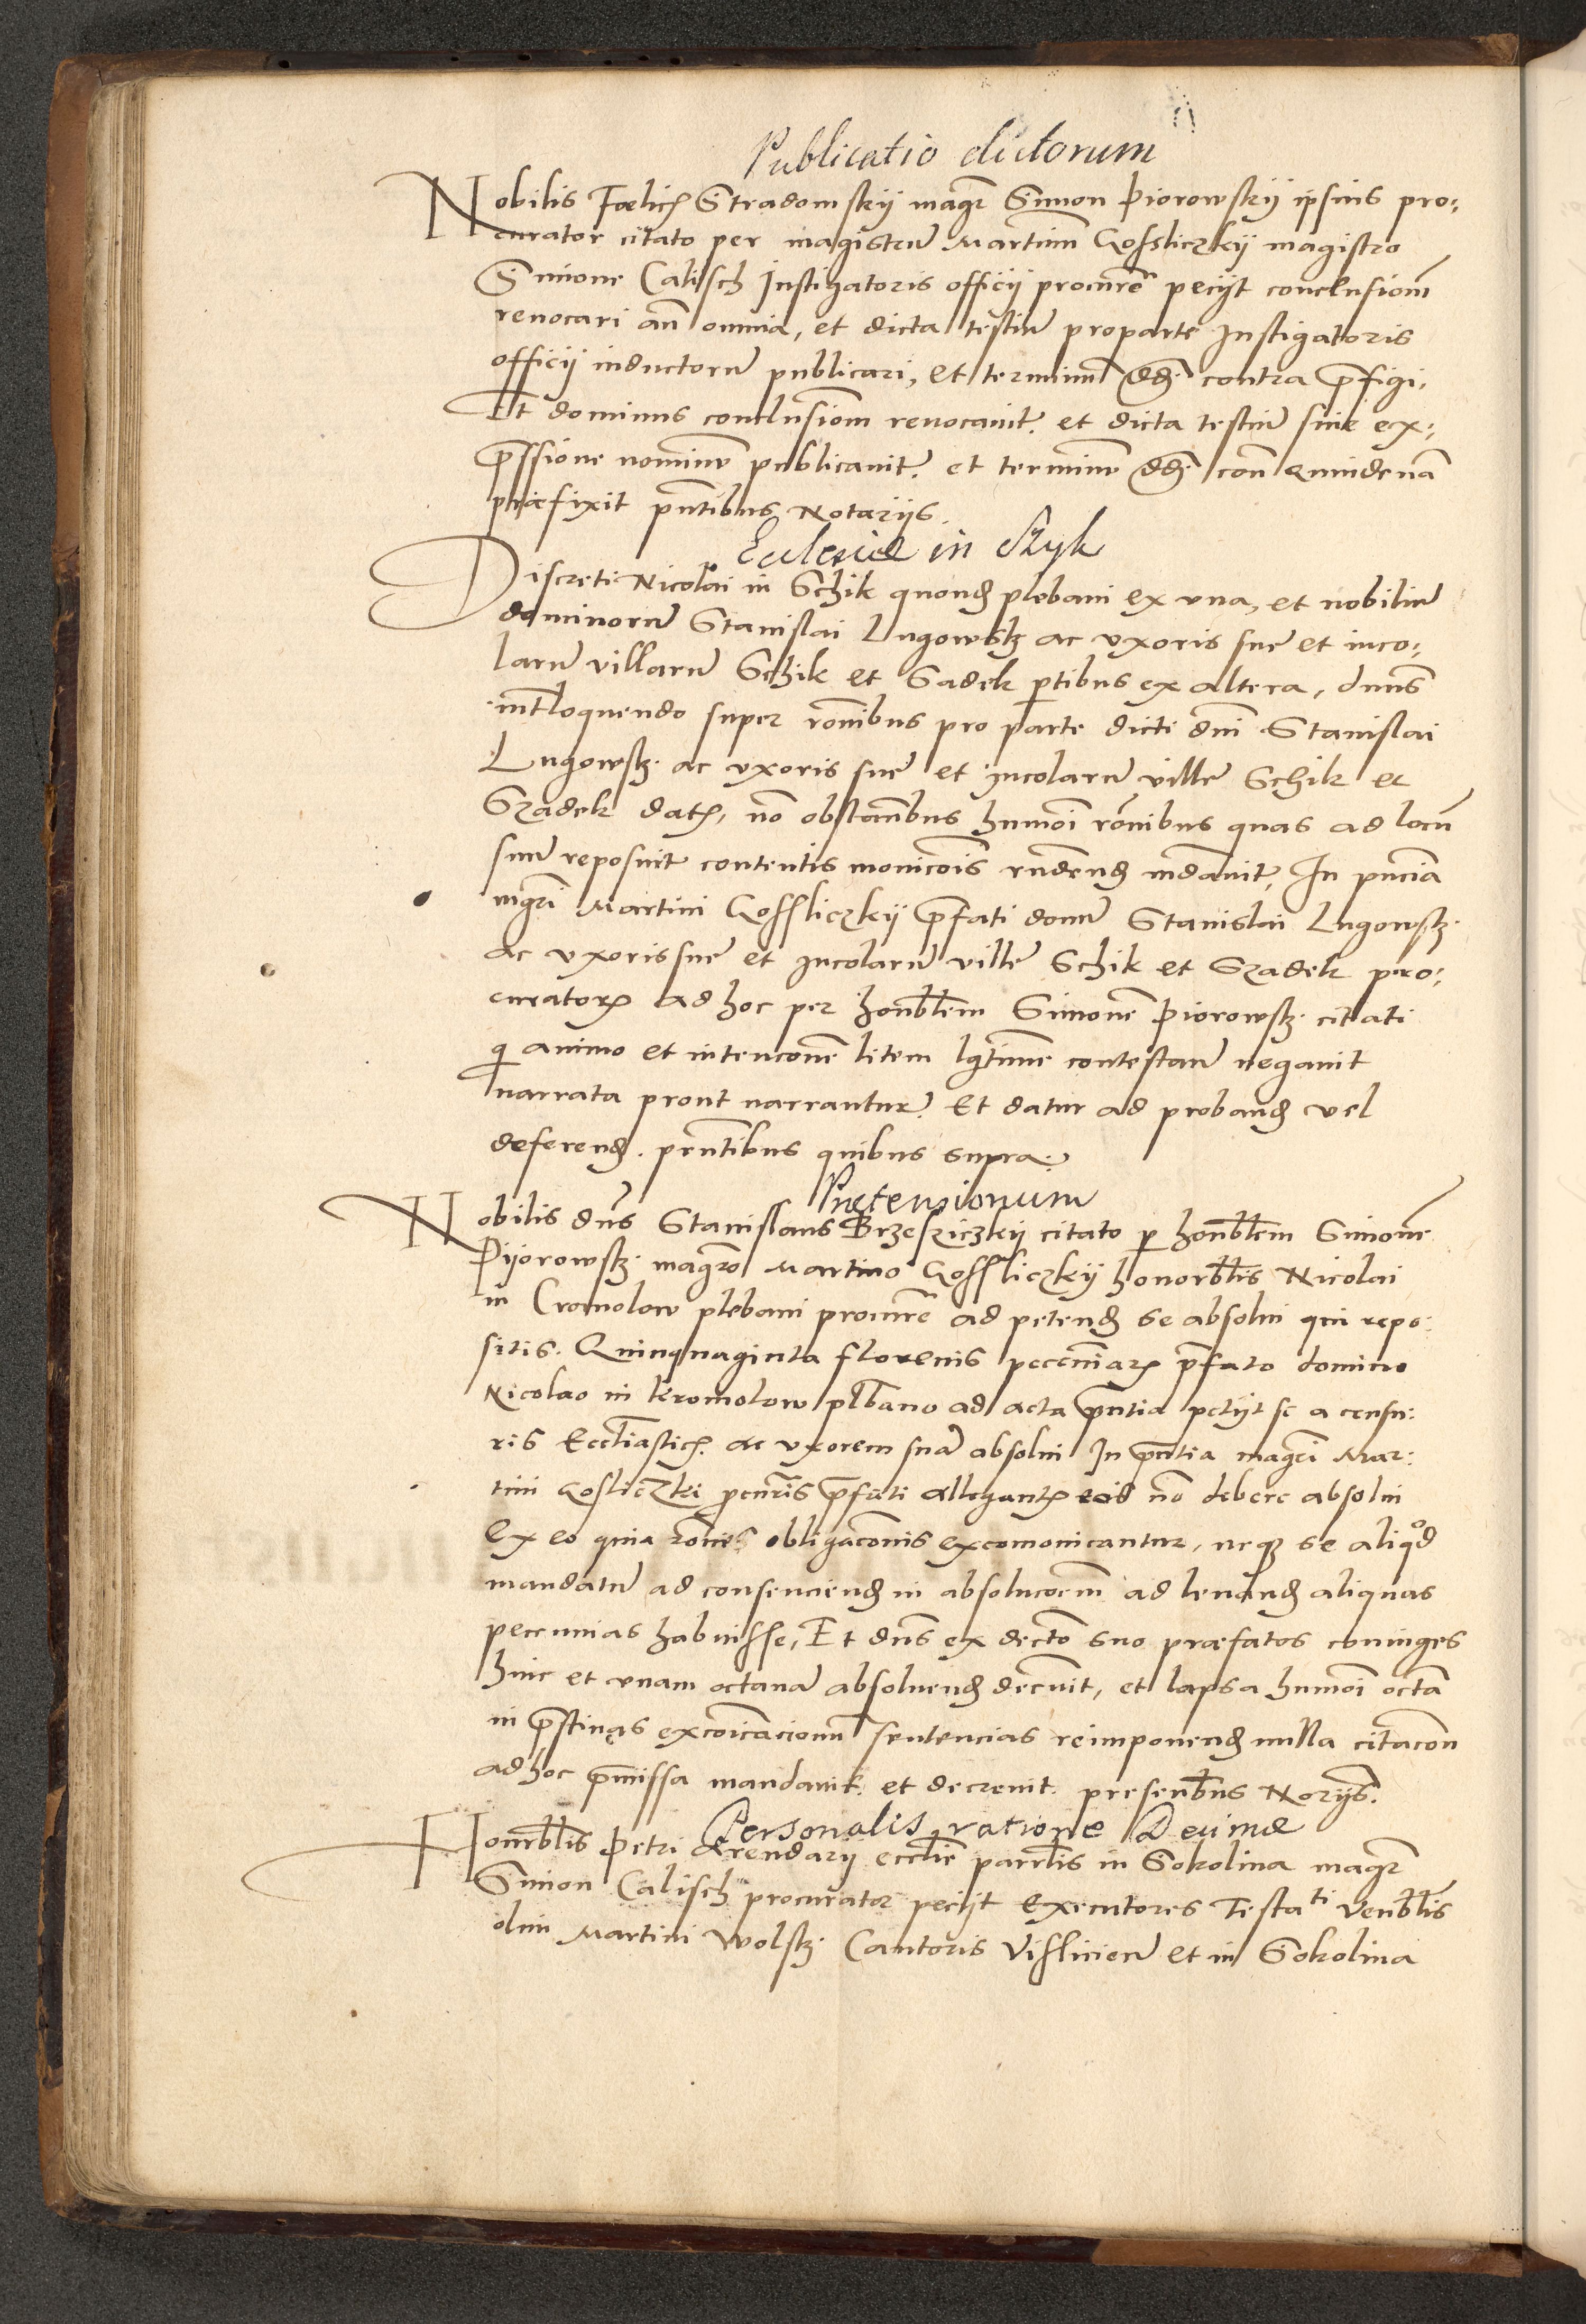 Publicatio dictorum
Nobilis Fœlicz Stradomskij magr Simon Piorowskij ipsius pro-
curator citato per magistrũ Martinũ Gosliczkij magistro
Simone Calisch Instigatoris officij procurẽ pecijt conclusionẽ
revocari añ omnia, et dicta testiũ pro parte Instigatoris
officij inductorũ publicari, et terminũ ddũ contra p̃figi,
Et dominus conclusionẽ revocavit. et dicta testiũ sine ex-
p̃ssione nominũ publicavit. et terminũ ddũ coñ quindenã
præfixit p̃ntibus Notarijs.
Ecclesiæ in Szyk
Discreti Nicolai in Schik quond plebani ex una, et nobiliũ
dominorũ Stanislai Lugowsk ac uxoris sue et inco-
larũ villarũ Schik et Sadek p̃tibus ex altera, dnus
int̃loquendo super rõnibus pro parte dicti dñi Stanislai
Lugowsk. ac uxoris sue et incolarũ ville Schik et
Szadek dat, nõ obstañbus hmõi rõnibus quas ad locũ
suũ reposuit contentis monicõis rñdend mdavit, In p̃nciã
mgri Martini Gosliczkij p̃fati domũ Stanislai Lugowsk.
ac uxoris sue et incolarũ ville Schik et Szadek pro-
curator ad hoc per honblem Simonẽ Piorowsk. citati
q animo et intencone litem lgtime contestanũ negavit
narrata prout narrantur. Et datur ad proband vel
deferend. p̃ntibus quibus supra.
Prętensionum
Nobilis dñs Stanislaus Brzesziczkij citato p honblem Simonẽ
Pijorowsk. magro Martino Gosliczkij honorblis Nicolai
in Cromolow plebani procurẽ ad petend se absolvi qui repo-
sitis. Quinquaginta florenis pecuniar p̃fato domino
Nicolao in Kromolow plbano ad acta p̃ntia petijt se a censu-
ris Eccliastic. ac uxorem suã absolvi In p̃ntia magri Mar-
tini Gosliczki p̃curis p̃fati allegant eos nõ debere absolvi
Ex eo quia rõne obligaconis excomonicantur, neq se aliqd
mandatũ ad consenciend in absolucoem ad levand aliquas
peccunias habuisse, Et dñs ex decto suo præfatos coniuges
hinc et unam octavã absolvend decrevit, et lapsa hmõi octã
in p̃stinas excoicacionũ sentencias reimponend nulla citacoñ
ad hoc p̃missa mandavit. et decrevit. presenbus Norijs.
Personalis ratione Decimæ
Honrblis Petri Arendarij ecclie parrlis in Sokolina magr
Simon Calisch procurator pecijt Executores Testati Venblis
olim Martini Wolsk. Cantoris Visliciensũ et in Sokolina